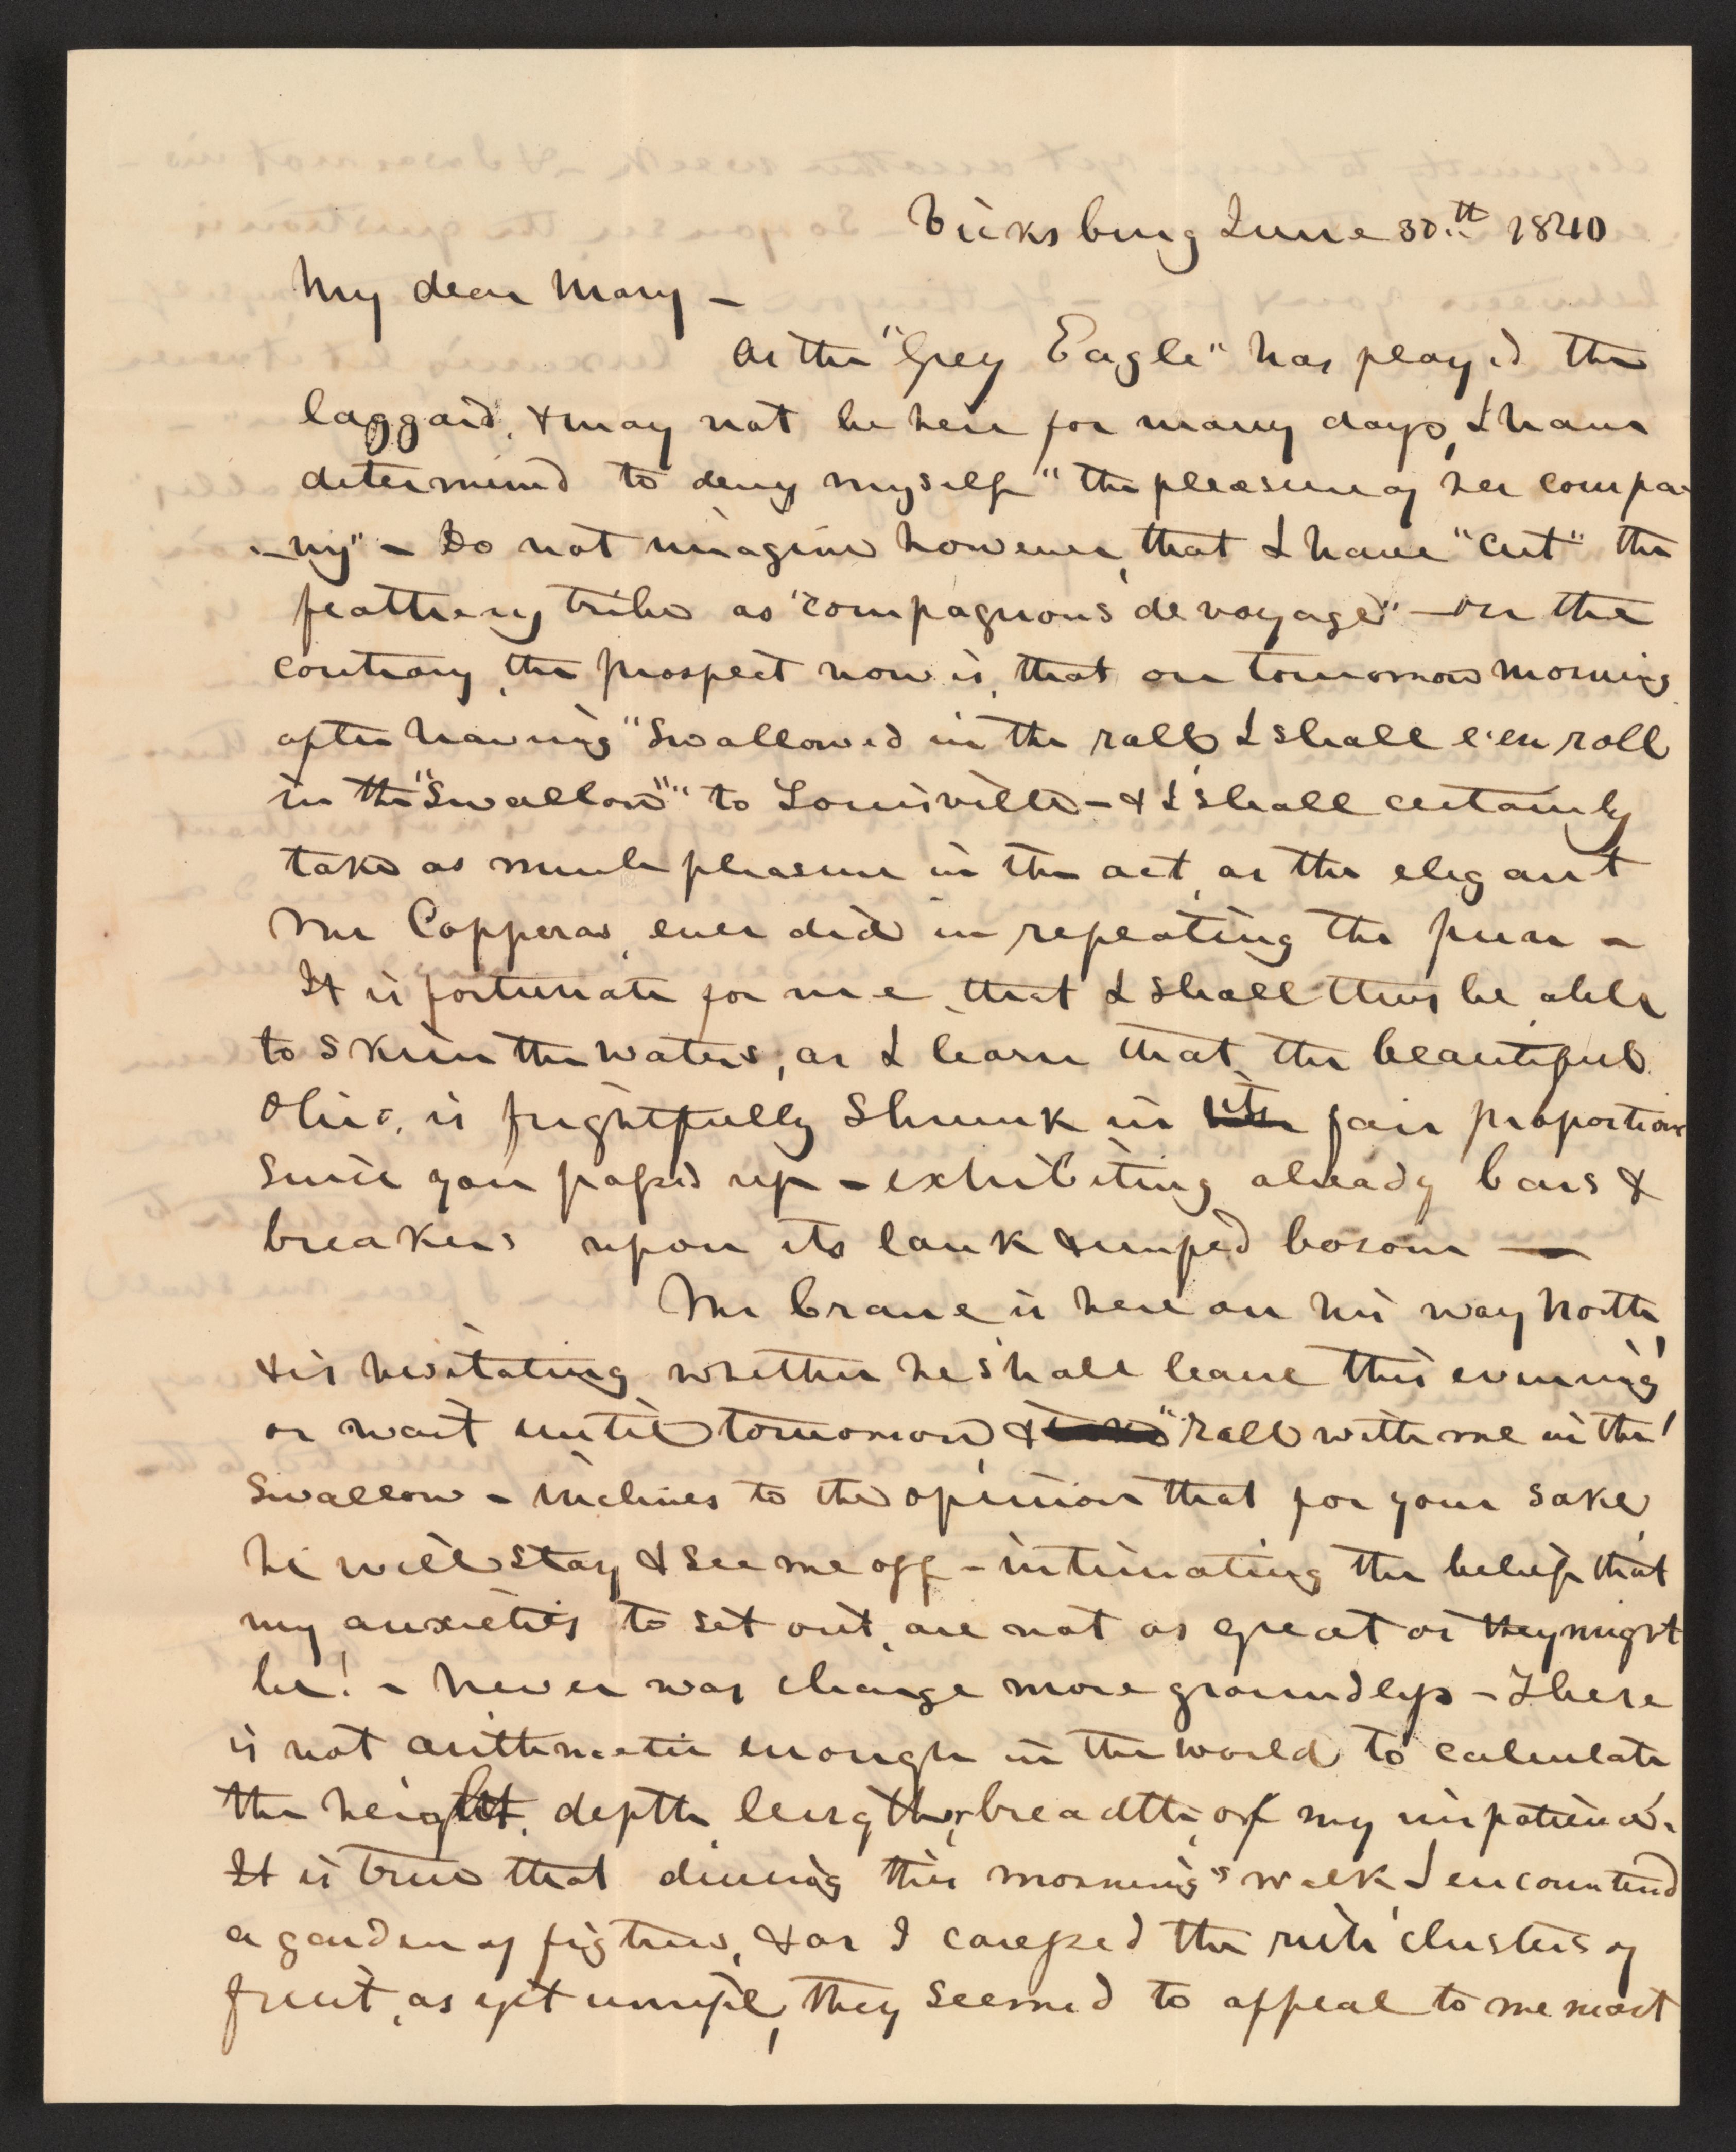 Vicksburg June 30th 1840
My dear Mary –
As the "Grey Eagle" has play'd the
laggard, & may not be here for many days, I have
determined to deny myself "the pleasure of her compa
-ny" – Do not imagine however, that I have "cut" the
feathery tribe as "compagnons de voyage" – on the
contrary, the prospect now is, that on tomorrow morning
after having "Swallowed in the roll, I shall e'en roll
in the "Swallow"" to Louisville – & I shall certainly
take as much pleasure in the act, as the elegant
Mr Copperas, ever did in repeating the pun –
It is fortunate for me, that I shall thus be able
to skim the waters, as I learn that, the beautiful
Ohio, is frightfully shrunk in its fair proportions
since you passed up – exhibiting already bars &
breakers upon its lank & unfed bosom –
Mr Crane is here on his way North,
& is hesitating whether he shall leave this evening
or wait until tomorrow, & "roll with me in the
Swallow – inclines to the opinion that for your sake
he will stay & see me off – intimating the belief that
my anxieties to set out, are not as great as they might
be! – Never was charge more groundless – There
is not arithmetic enough in the world to calculate
the height, depth, length, & breadth, of my impatience.
It is true that during this morning's walk I encountered
a garden of fig trees, & as I caressed the rich clusters of
fruit, as yet unripe, they seemed to appeal to me most